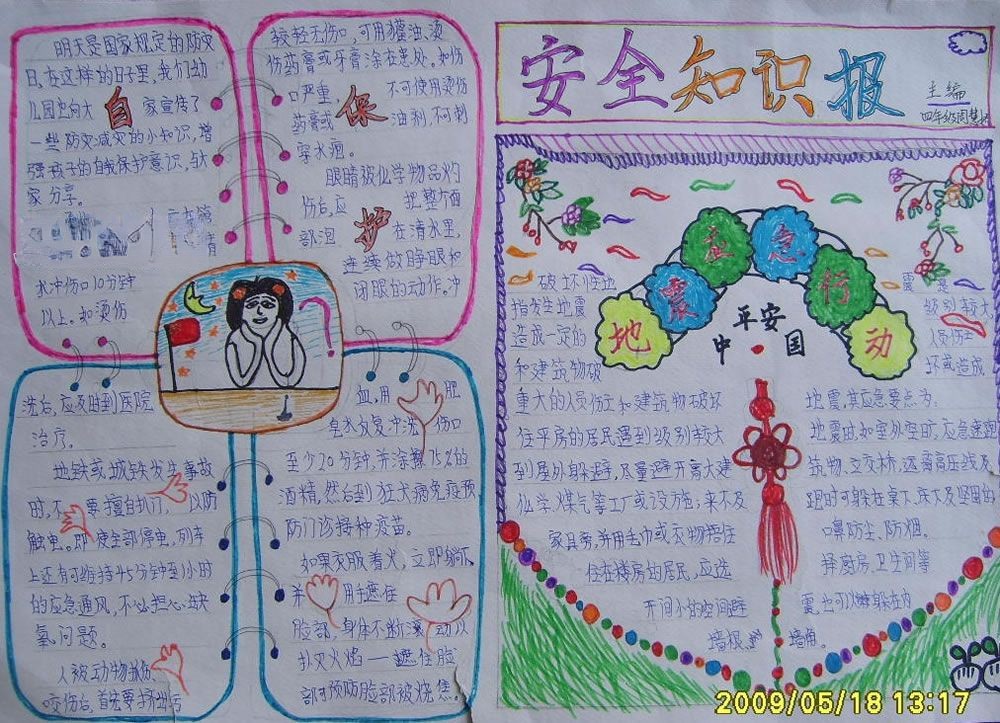 明天是国家规定的防灾
日,在这样的日子里,我们幼
儿园也向大 自 家宣传了
一些防灾减灾的小知识,增
强孩子的自我保护意识,与大
家分享。
水冲伤口10分钟
以上。如烫伤
较轻无伤口,可用獾油、烫
伤药膏或牙膏涂在患处。如伤
口严重, 保 不可使用烫伤
药膏或 油剂,不可刺
穿水疱。
眼睛被化学物品灼
伤后,应 把整个面
部泡 护 在清水里,
连续做睁眼和
闭眼的动作。冲
洗后,应及时到医院
治疗。
地铁或城铁发生事故
时,不 要擅自扒门, 以防
触电。即 使全部停电,列车
上还有可维持45分钟到1小时
的应急通风,不必担心缺
氧问题。
人被动物抓伤、
咬伤后,首先要挤出污
血,用 肥
皂水反复冲洗 伤口
至少20分钟,并涂擦75%的
酒精,然后到狂犬病免疫预
防门诊接种疫苗。
如果衣服着火,立即躺下
并 用手遮住
脸部,身体不断滚 动以
扑灭火焰——遮住脸
部可预防脸部被烧焦。
安全知识报
主编
四年级周慧
地震应急行动
平安
中·国
破坏性地 震,是
指发生地震 级别较大,
造成一定的 人员伤亡
和建筑物破 坏或造成
重大的人员伤亡和建筑物破坏 地震,其应急要点为:
住平房的居民遇到级别较大 地震时,如室外空时,应急速跑
到屋外躲避,尽量避开高大建 筑物、立交桥,远离高压线及
化学、煤气等工厂或设施,来不及 跑时可躲在桌下、床下及坚固的
家具旁,并用毛巾或衣物捂住 口鼻防尘、防烟。
住在楼房的居民,应选 择厨房、卫生间等
开间小的空间避 震,也可以躲在内
墙根、 墙角。
2009/05/18 13:17